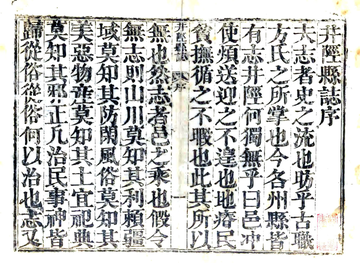 井陘縣誌序
夫志者史之流也昉乎古職
方氏之所掌也今各州縣皆
有志井陘何獨無乎曰邑冲
使煩送迎之不遑也地瘠民
貧撫循之不暇也此其所以
無也然志者邑之乘也假令
無志則山川莫知其利賴疆
域莫知其防閑風俗莫知其
美惡物產莫知其土宜祀典
莫知其邪正凡治民事神皆
歸從俗從俗何以治也志又